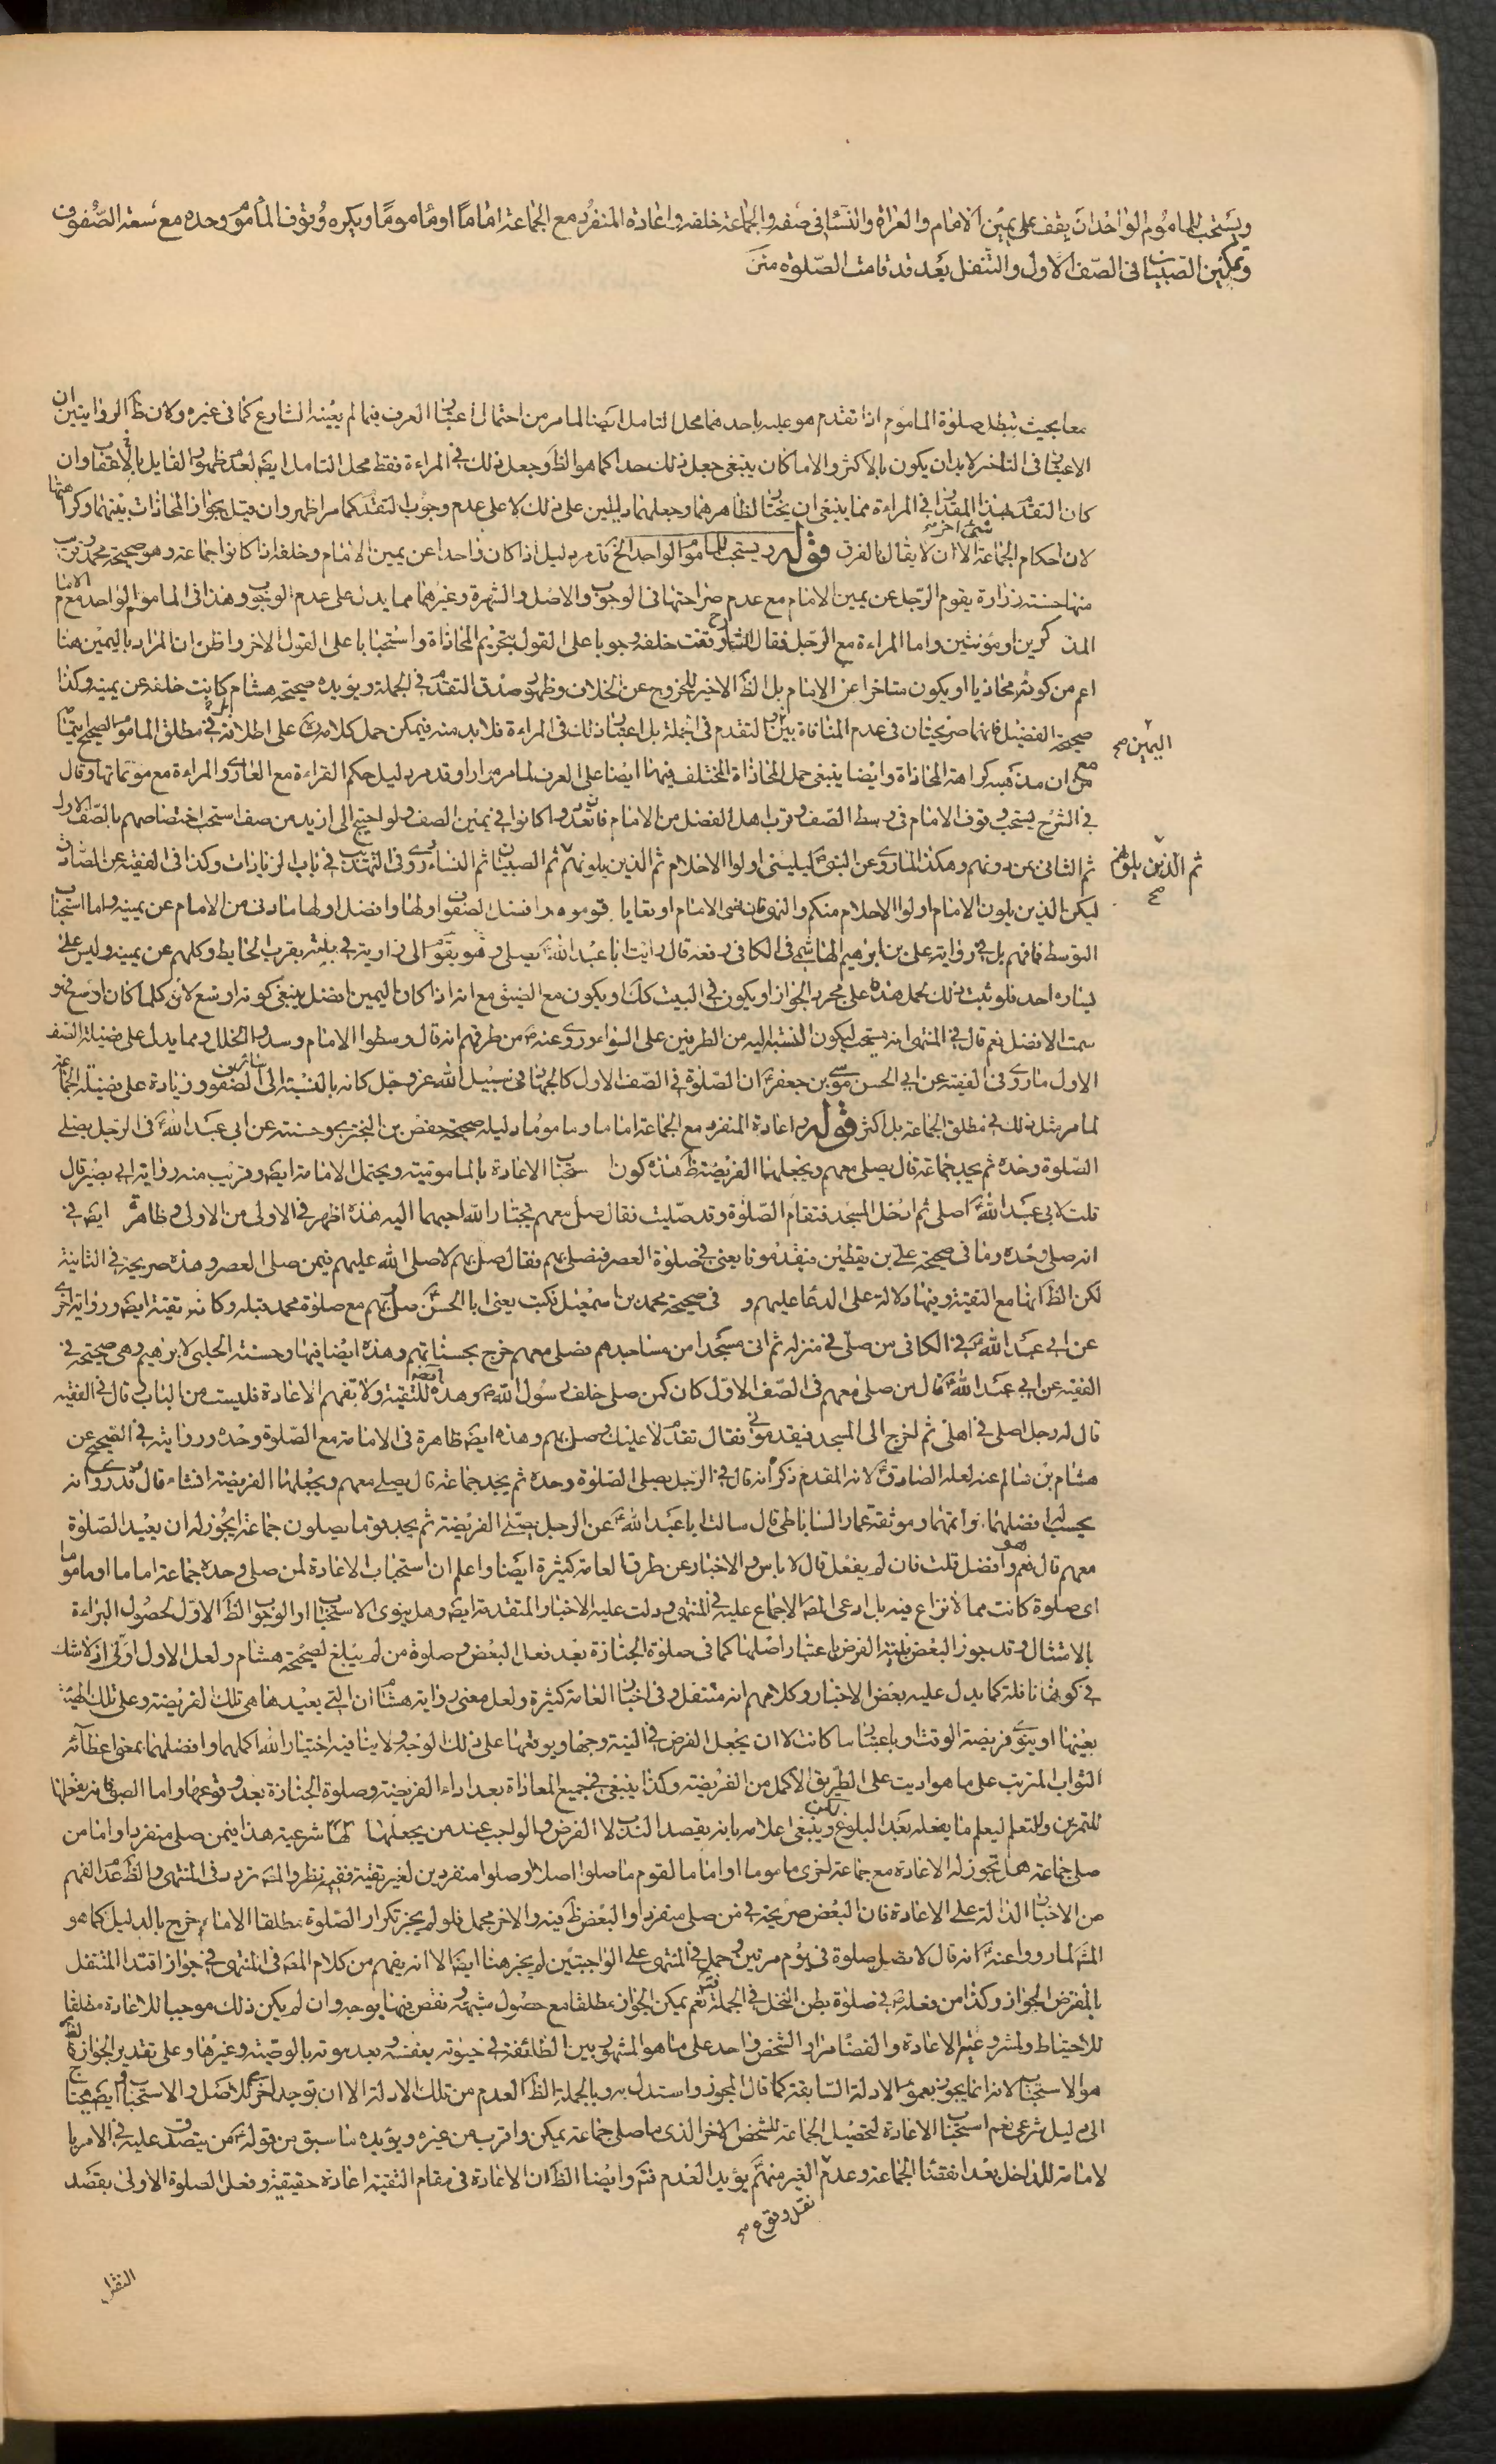 ويستحب للماموم الواحد ان يقف على يمين الامام والعراة والنساء في صفه والجماعة خلفه واعادة المنفرد مع الجماعة اماماً او مأموماً ويكره وقوف المأموم وحده مع سعة الصفوف
وتمكين الصبيان في الصف الاول والتنفل بعد قد قامت الصلوة متن
معا بحيث تبطل صلوة الماموم اذا تقدم هو عليه باحدهما محل التامل ايضا لما مر من احتمال اعتبار العرف فيما لم يعينه الشارع كما في غيره وكان ظ الروايتين ان
الاعتبار في التاخر لا بد ان يكون بالاكثر والا ما كان ينبغي جعل ذلك حدا كما هو الظ وجعل ذلك في المراءة فقط محل التامل ايض لعدم ظهور القايل بالاعقاب وان
كان التقدم بهذا المقدار في المراءة مما ينبغي ان يختار لظاهرهما وجعلهما دليلين على ذلك لا على عدم وجوب التقدم كما مر اظهر وان قيل بجواز المحاذات بينهما وكراهتها
لان احكام الجماعة شئ اخر الا ان لا يقال بالفرق قوله ويستحب للماموم الواحد الخ قد مر دليل اذا كان واحدا عن يمين الامام وخلفه اذا كانوا جماعة وهو صحيحة محمد وقريب
منها حسنة زرارة يقوم الرجل عن يمين الامام مع عدم صراحتها في الوجوب والاصل والشهرة وغيرهما مما يدل على عدم الوجوب وهذا في الماموم الواحد مع الامام
المذكرين او مؤنثين واما المراءة مع الرجل فقال الشارح تقف خلفه وجوبا على القول بتحريم المحاذاة واستحبابا على القول الاخر واظن ان المراد باليمين هنا
اعم من كونه محاذيا او يكون متاخرا عن الامام بل الظ الاخير للخروج عن الخلاف وظهور صدق التقدم في الجملة ويؤيده صحيحة هشام كانت خلفه عن يمينه وكذا
صحيحة الفضيل فانهما صريحتان في عدم المنافاة بين اليمين والتقدم في الجملة بل اعتبار ذلك في المراءة فلا بد منه فيمكن حمل كلامه على اطلاقه في مطلق الماموم الصحيح ايتمامه
مع ان مذهبه كراهة المحاذاة وايضا ينبغي حمل المحاذاة المختلف فيها ايضا على العرف لما مر مرارا وقد مر دليل حكم القراءة مع العاري والمراءة مع مؤتماتها وقال
في الشرح يستحب وقوف الامام في وسط الصف وقرب اهل الفضل من الامام فان تعددوا كانوا في يمين الصف ولو احتيج الى ازيد من صف استحب اختصاصهم بالصف الاول
ثم الثاني من دونهم وهكذا لما روى عن النبي ليليني اولوا الاحلام ثم الذين يلونهم ثم الذين يلونهم ثم الصبيان ثم النساء وروى في التهذيب في باب الزيادات وكذا في الفقيه عن الصادق
ليكن الذين يلون الامام اولوا الاحلام منكم والنهى فان نسى الامام او تعايا قوموه وافضل الصفوف اولها وافضل اولها ما دنى من الامام عن يمينه واما استحباب
التوسط فما فهم بل في رواية علي بن ابرهيم الهاشمي في الكافي رفعه قال رايت ابا عبد الله يصلي وهو بقوم الى زاوية في بيته بقرب الحائط وكلهم عن يمينه وليس على
يساره احد فلو ثبت ذلك لحمل هذه على مجرد الجواز او يكون في البيت كك او يكون مع الضيق مع انه اذا كان اليمين افضل ينبغي كونه اوسع لانه كلما كان اوسع فهو
سمت الافضل نعم قال في المنتهى انه يستحب ليكون النسبة اليه من الطرفين على السواء وروى عنه من طرقهم انه قال وسطوا الامام وسدوا الخلل ومما يدل على فضيلة الصف
الاول ما روى في الفقيه عن ابي الحسن موسى بن جعفر ان الصلوة في الصف الاول كالجهاد في سبيل الله عز وجل كانه بالنسبة الى سائر الصفوف وزيادة على فضيلة الجماعة
لما مر مثل ذلك في مطلق الجماعة بل اكثر قوله واعادة المنفرد مع الجماعة اماما وماموما دليله صحيحة حفص بن البختري وحسنته عن ابي عبد الله في الرجل يصلي
الصلوة وحده ثم يجد جماعة قال يصلي معهم ويجعلها الفريضة ظ هذه كون استحباب الاعادة بالمامومية ويحتمل الامامة ايض وقريب منه رواية ابي بصير قال
قلت لابي عبد الله اصلي ثم ادخل المسجد فتقام الصلوة وقد صليت فقال صل معهم يختار الله احبهما اليه هذه اظهر في الاولى من الاولى وظاهرة ايض في
انه صلى وحده وما في صحيحة علي بن يقطين فيقدمونا يعني في صلوة العصر فنصلي بهم فقال صل بهم لا صلى الله عليهم فيمن صلى العصر وهذه صريحة في الثانية
لكن الظ انها مع التقية وفيها دلالة على الدعا عليهم و في صحيحة محمد بن اسمعيل فكتب يعني ابا الحسن صل بهم مع صلوة محمد قبله وكانه تقية ايض ورواية اخرى
عن ابي عبد الله في الكافي من صلى في منزله ثم اتى مسجدا من مساجدهم فصلى معهم خرج بحسناتهم وهذه ايضا فيها وحسنة الحلبي لابرهيم وهي صحيحة في
الفقيه عن ابي عبد الله قال من صلى معهم في الصف الاول كان كمن صلى خلف رسول الله وهذه ايضا للتقية ولا تفهم الاعادة فليست من الباب قال في الفقيه
قال له رجل اصلي في اهلي ثم اخرج الى المسجد فيقدموني فقال تقدم لا عليك وصل بهم وهذه ايض ظاهرة في الامامة مع الصلوة وحده ورواية في الصحيح عن
هشام بن سالم عنه لعله الصادق لانه المقدم ذكره انه قال في الرجل يصلي الصلوة وحده ثم يجد جماعة قال يصلي معهم ويجعلها الفريضة ان شاء قال وقد روى انه
يحسب له افضلهما واتمهما وموثقة عمار الساباطي قال سالت ابا عبد الله عن الرجل يصلي الفريضة ثم يجد قوما يصلون جماعة ايجوز له ان يعيد الصلوة
معهم قال نعم وهو افضل قلت فان لم يفعل قال لا باس والاخبار عن طرق العامة كثيرة ايضا واعلم ان استحباب الاعادة لمن صلى وحده جماعة اماما او ماموما
اى صلوة كانت مما لا نزاع فيه بل ادعى المص الاجماع عليه في المنتهى ودلت عليه الاخبار المتقدمة ايض وهل ينوى الاستحباب او الوجوب الظ الاول لحصول البراءة
بالامتثال وقد يجوز البعض بنية الفرض باعتبار اصلها كما في صلوة الجنازة بعد فعل البعض وصلوة من لم يبلغ لصحيحة هشام ولعل الاول اولى اذ لا شك
في كونها نافلة كما يدل عليه بعض الاخبار وكلامهم انه متنفل وفي اخبار العامة كثيرة ولعل معنى رواية هشام ان التي يعيدها هي تلك الفريضة وعلى تلك الهيئة
بعينها او ينوى فريضة الوقت وباعتبار ما كانت لا ان يجعل الفرض في النية وجها ويوقعها على ذلك الوجه ولا ينافيه اختيار الله اكملهما وافضلهما بمعنى اعطائه
الثواب المترتب على ما هو اديت على الطريق الاكمل من الفريضة وكذا ينبغي في جميع المعاداة بعد اداء الفريضة وصلوة الجنازة بعد وقوعها واما الصبي فانه يفعلها
للتمرين وللتعلم ليعلم ما يفعله بعد البلوغ وينبغي اعلامه بانه يقصد الندب لا الفرض والواجب عند من يجعلها شرعية هذا فيمن صلى منفردا واما من
صلى جماعة هل تجوز له الاعادة مع جماعة اخرى ماموما او اماما لقوم ما صلوا اصلا او صلوا منفردين لغير تقية ففيه نظر والمص تردد في المنتهى والظ عدم الفهم
من الاخبار الدالة على الاعادة فان البعض صريحة في من صلى منفردا والبعض ظ فيه والاخر مجمل فلو لم يجز تكرار الصلوة مطلقا الا ما خرج بالدليل كما هو
المش لما رووا عنه انه قال لا تصل صلوة في يوم مرتين وحمل في المنتهى على الواجبتين لم يجز هنا ايض الا انه يفهم من كلام المص في المنتهى في جواز اقتداء المتنفل
بالمفترض الجواز وكذا من فعله في صلوة بطن النخل في الجملة نعم يمكن الجواز مطلقا مع حصول شبهة ونقص فيها يوجبه وان لم يكن ذلك موجبا للاعادة مطلقا
للاحتياط ولمشروعية الاعادة والقضا مرارا لشخص واحد على ما هو المشهور بين الطائفة في حيوته بنفسه وبعد موته بالوصية وغيرها وعلى تقدير الجواز
هو الاستحباب لانه انما يجوز بعموم الادلة السابقة كما قال المجوز واستدل به وبالجملة الظ العدم من تلك الادلة الا ان يوجد اخرى للاصل والاستحباب ايض يحتاج
الى دليل شرعى نعم استحباب الاعادة لتحصيل الجماعة للشخص الاخر الذى ما صلى جماعة يمكن واقرب من غيره ويؤيده ما سبق من قوله من يتصدق عليه في الامر با
لامامة للداخل بعد انقضاء الجماعة وعدم نقل وقوع الغير منهم يؤيد العدم فتم وايضا الظ ان الاعادة في مقام التقية اعادة حقيقة وفعل الصلوة الاولى بقصد
اليمين صح
ثم الذين يلونهم صح
نقل وقوع صح